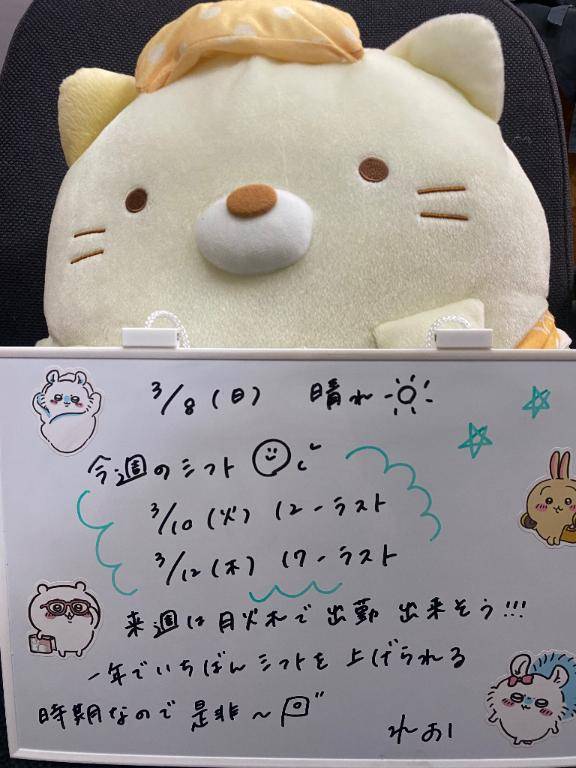 3/8(日) 晴れ
今週のシフト
3/10(火) 12-ラスト
3/12(木) 17-ラスト
来週は月火木で出勤出来そう!!!
一年でいちばんシフトを上げられる
時期なので是非〜
れおー